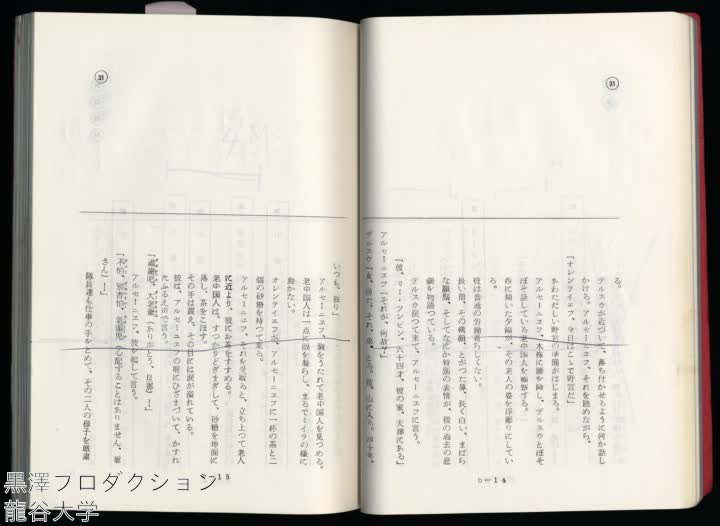 31
る。
デルスウが近づいて、落ち付かせるように何か話し
かける。アルセーニエフ、それを眺めながら、
「オレンテイエフ、今日はこゝで野営だ」
あわただしい野営の準備がはじまる。
アルセーニエフ、木株に腰を卸し、デルスウとぼそ
ぼそ話している老中国人を観察する。
西に傾いた夕陽が、その老人の姿を浮彫りにしてい
る。
彼は普通の労働者らしくない。
長い指、その横顔、とがつた鼻、長く白い、まばら
な顎鬚、そしてなにか特別の表情が、彼の過去の悲
劇を物語つている。
デルスウ戻つて来て、アルセーニエフに言う。
「彼、リー・ツンピン、六十四才、彼の家、天津にある」
アルセーニエフ「それが、何故？」
b―14
31
いつも、独り」
アルセーニエフ、胸をうたれて老中国人を見つめる。
老中国人は、一点に眼を凝らし、まるでミイラの様に
動かない。
オレンテイエフが、アルセーニエフに一杯の茶と二
個の砂糖を持つて来る。
アルセーニエフ、それを受取ると、立ち上つて老人
に近より、彼にお茶をすすめる。
老中国人は、すつかりどぎまぎして、砂糖を地面に
落し、茶をこぼす。
その手は震え、その目には涙が溢れている。
彼は、アルセーニエフの前にひざまづいて、かすれ
たふるえ声で言う。
「道謝吧、大老爺（ありがとう、旦那）！」
アルセーニエフ、彼を起して言う。
さん）！」
隊員達も仕事の手をとめて、その二人の様子を厳粛
b―15
黒澤プロダクション
龍谷大学